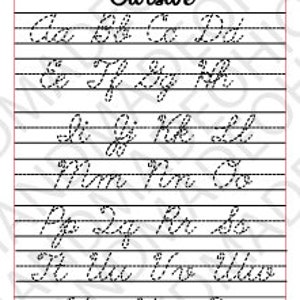 Cursive
Aa Bb Cc Dd
Ee Ff Gg Hh
Ii Jj Kk Ll
Mm Nn Oo
Pp Qq Rr Ss
Tt Uu Vv Ww